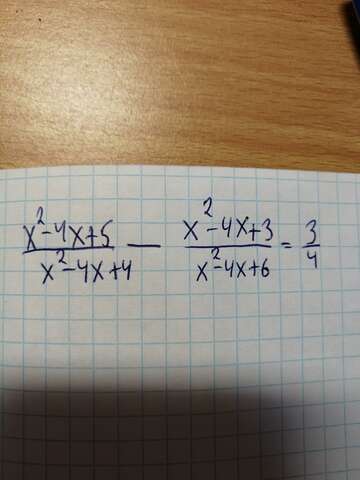 x²-4x+5 / x²-4x+4 — x²-4x+3 / x²-4x+6 = 3/4